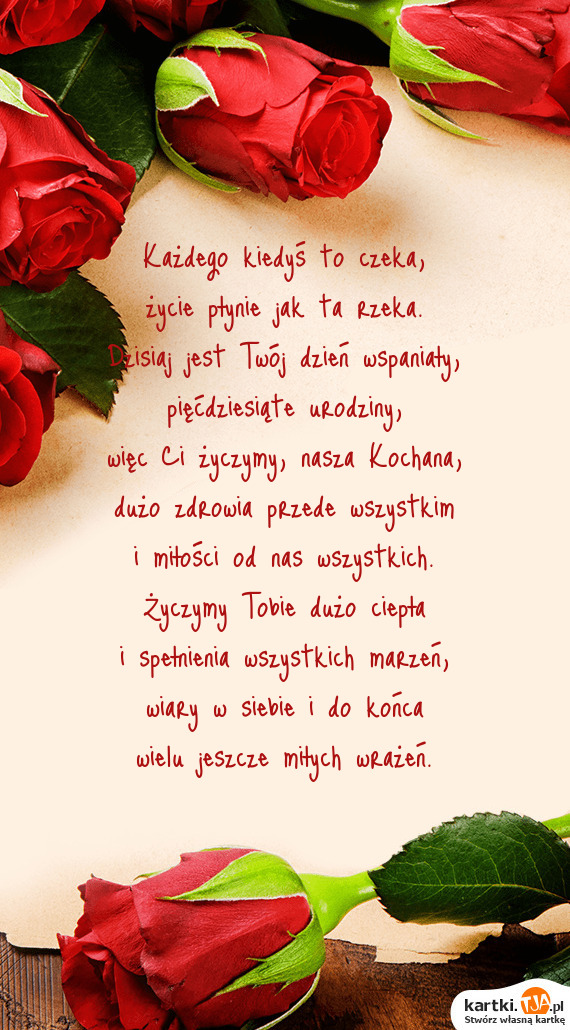 Każdego kiedyś to czeka,
życie płynie jak ta rzeka.
Dzisiaj jest Twój dzień wspaniały,
pięćdziesiąte urodziny,
więc Ci życzymy, nasza Kochana,
dużo zdrowia przede wszystkim
i miłości od nas wszystkich.
Życzymy Tobie dużo ciepła
i spełnienia wszystkich marzeń,
wiary w siebie i do końca
wielu jeszcze miłych wrażeń.
kartki.TJA.pl
Stwórz własną kartkę